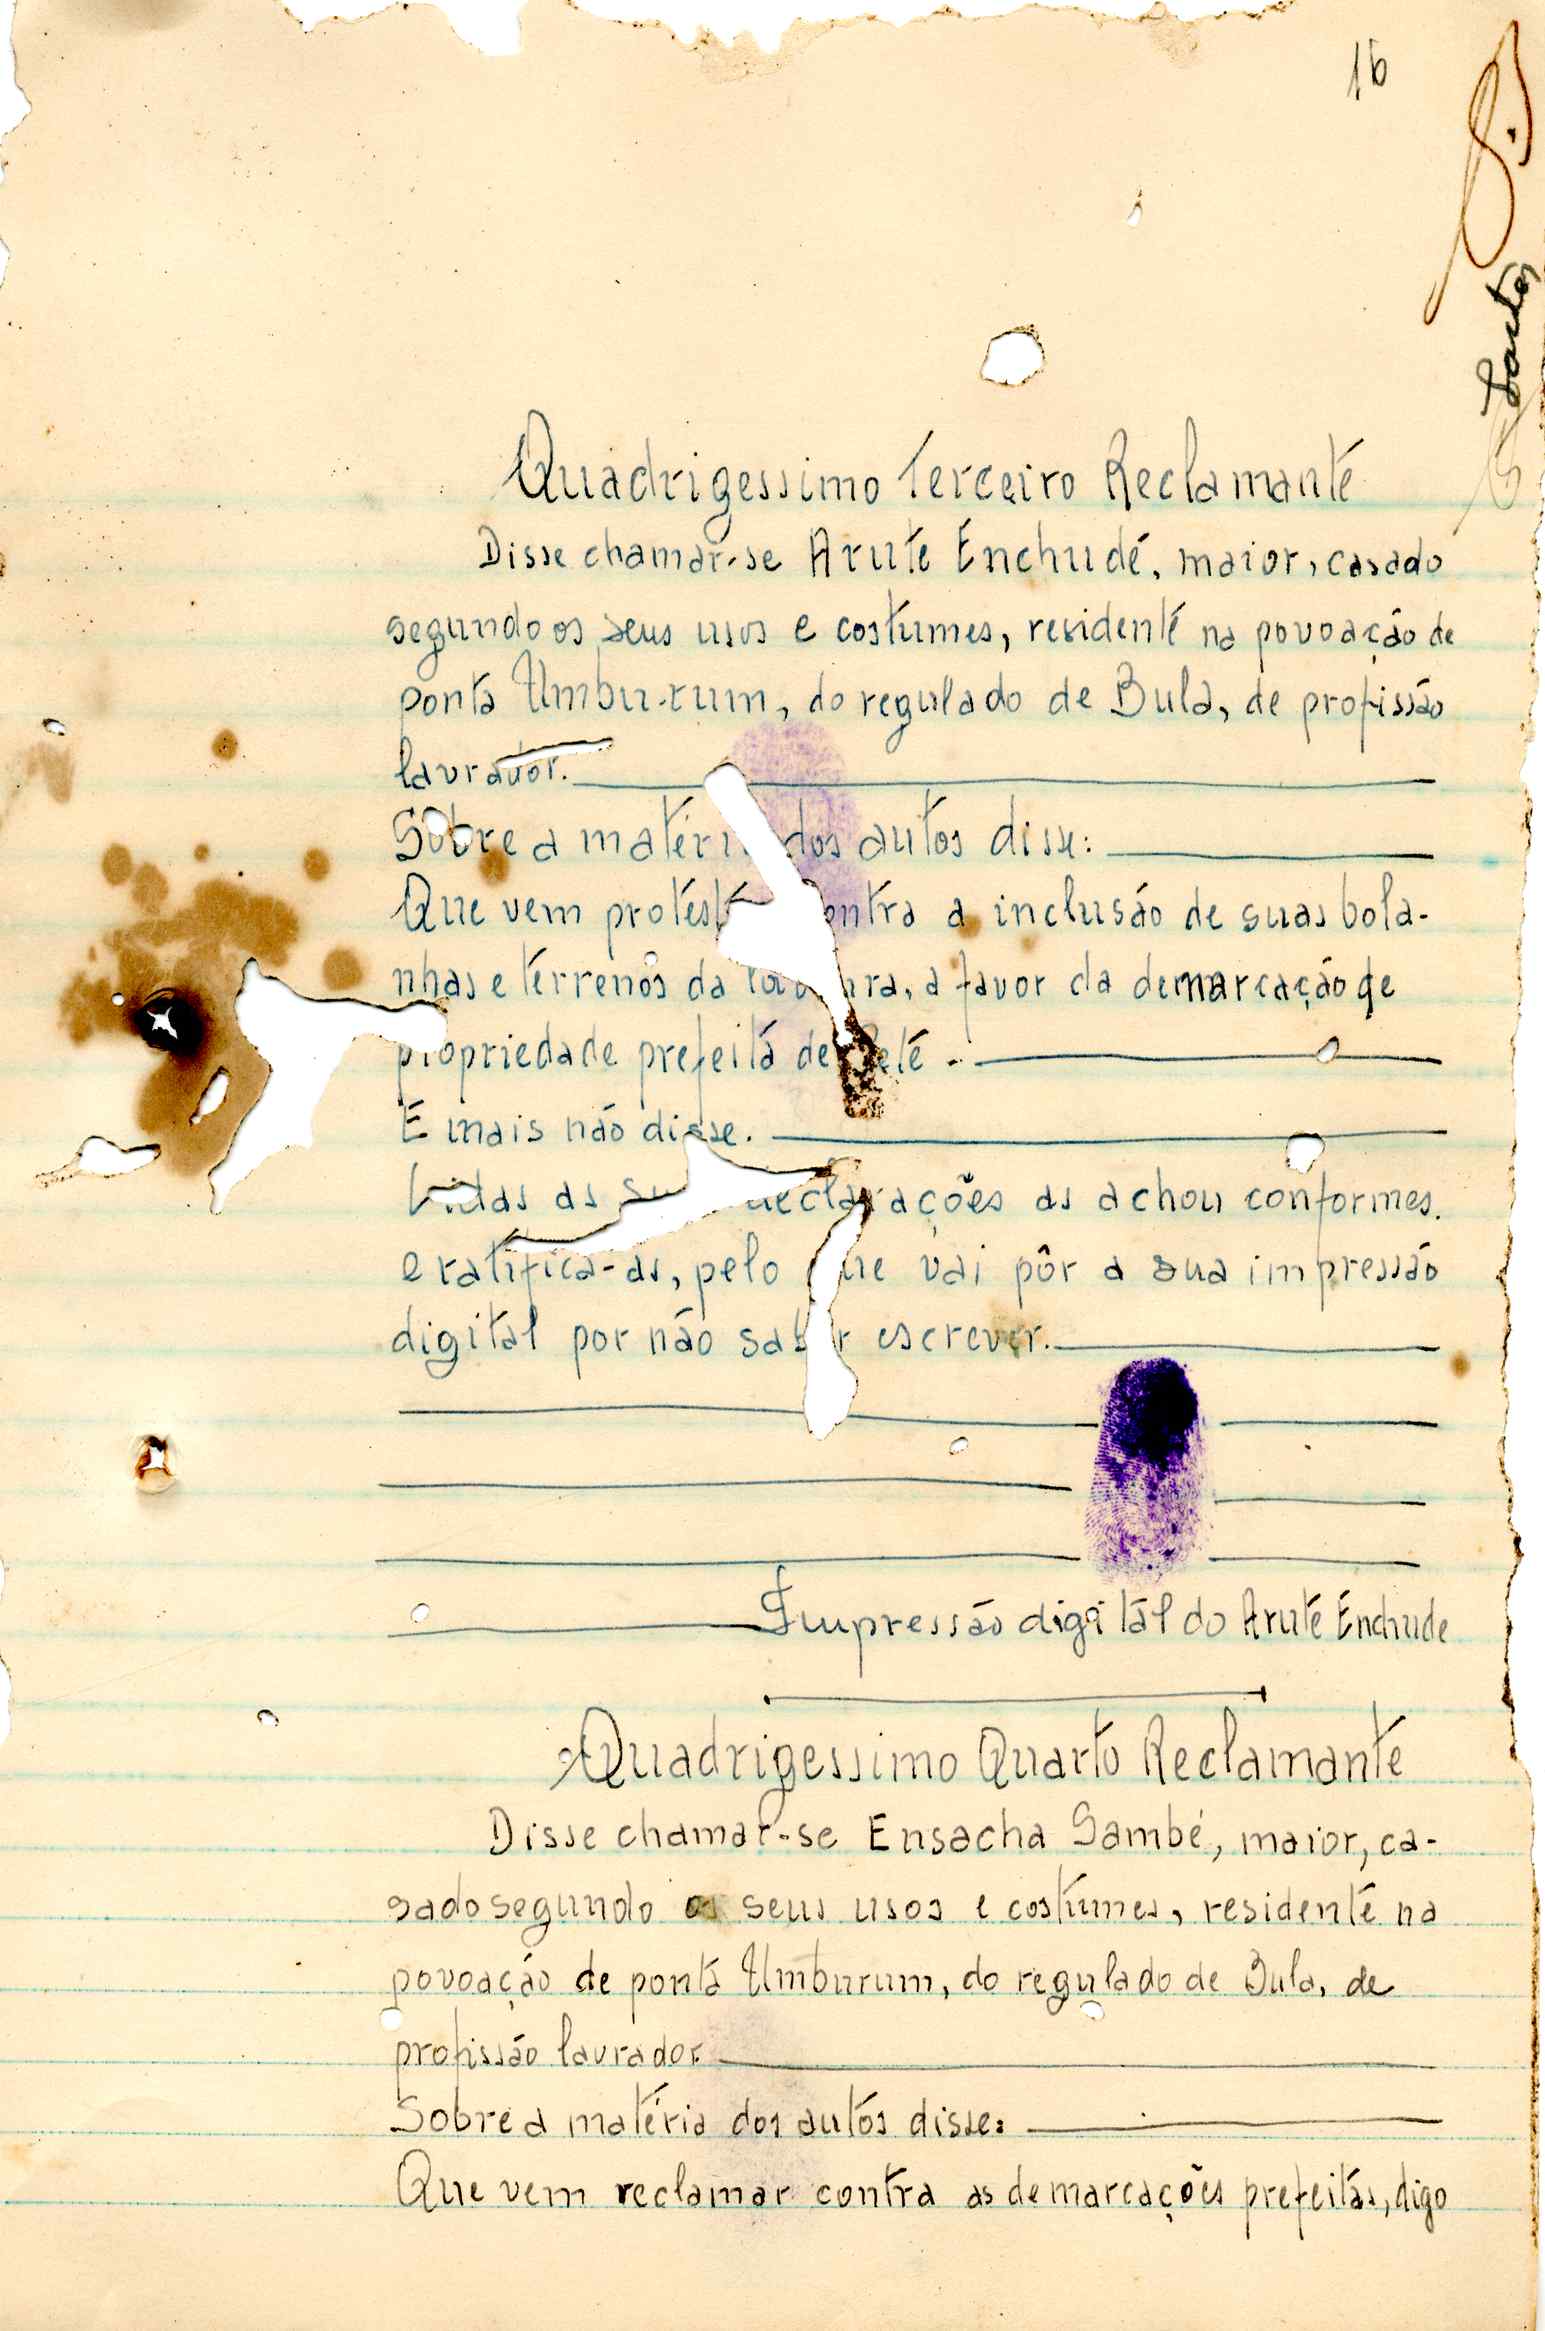 16
Santos
Quadrigessimo terceiro Reclamante
Disse chamar-se Aruté Enchudé, maior, casado
segundo os seus usos e costumes, residente na povoação de
ponta Umbu-rum, do regulado de Bula, de profissão
lavrador.
Sobre a matéri dos autos disse:
Que vem protest ontra a inclusão de suas bola-
nhas e terrenos da lavoura, a favor da demarcação de
propriedade prefeita de Peté.
E mais não disse.
Lidas as su declarações as achou conformes.
e ratifica-as, pelo que vai pôr a sua impressão
digital por não saber escrever.
Impressão digital do Aruté Enchude
Quadrigessimo Quarto Reclamante
Disse chamar-se Ensacha Sambé, maior, ca-
sado segundo os seus usos e costumes, residente na
povoação de ponta Umburum, do regulado de Bula, de
profissão lavrador.
Sobre a matéria dos autos disse:
Que vem reclamar contra as demarcações prefeitas, digo